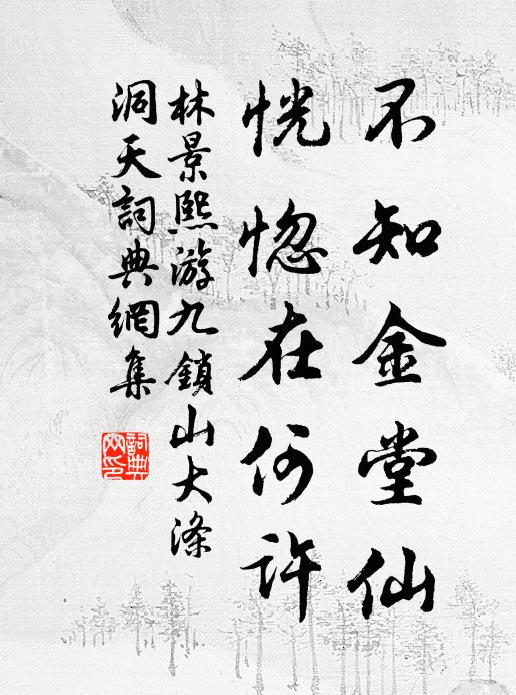 不知金堂仙
恍惚在何許
林景熙游九鎖山大滌
洞天詞典網集
詞典網印